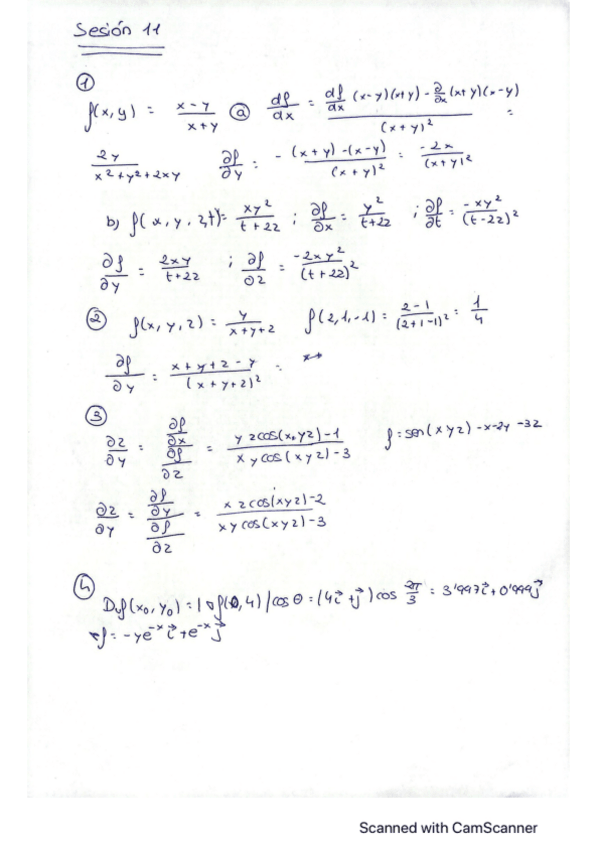 Sesión 11
①
f(x,y) = x-y / x+y ⓐ df/dx = df/dx (x-y)(x+y) - ∂/∂x (x+y)(x-y) / (x+y)² =
2y / x²+y²+2xy ∂f/∂y = -(x+y)-(x-y) / (x+y)² = -2x / (x+y)²
b) f(x,y,z,t) = xy² / t+2z ; ∂f/∂x = y² / t+2z ; ∂f/∂t = -xy² / (t-2z)²
∂f/∂y = 2xy / t+2z ; ∂f/∂z = -2xy² / (t+2z)²
② f(x,y,z) = y / x+y+z f(2,1,-1) = 2-1 / (2+1-1)² = 1/4
∂f/∂y = x+y+z-y / (x+y+z)² =
③
∂z/∂y = ∂f/∂x / ∂f/∂z = yzcos(x,yz)-1 / xycos(xyz)-3 f=sen(xyz)-x-2y-3z
∂z/∂y = ∂f/∂y / ∂f/∂z = xzcos(xyz)-2 / xycos(xyz)-3
④ Duf(x₀,y₀) = |∇f(0,4)|cosθ = (4i⃗+j⃗)cos 2π/3 = 3'997i⃗+0'999j⃗
∇f = -ye⁻ˣi⃗+e⁻ˣj⃗
Scanned with CamScanner